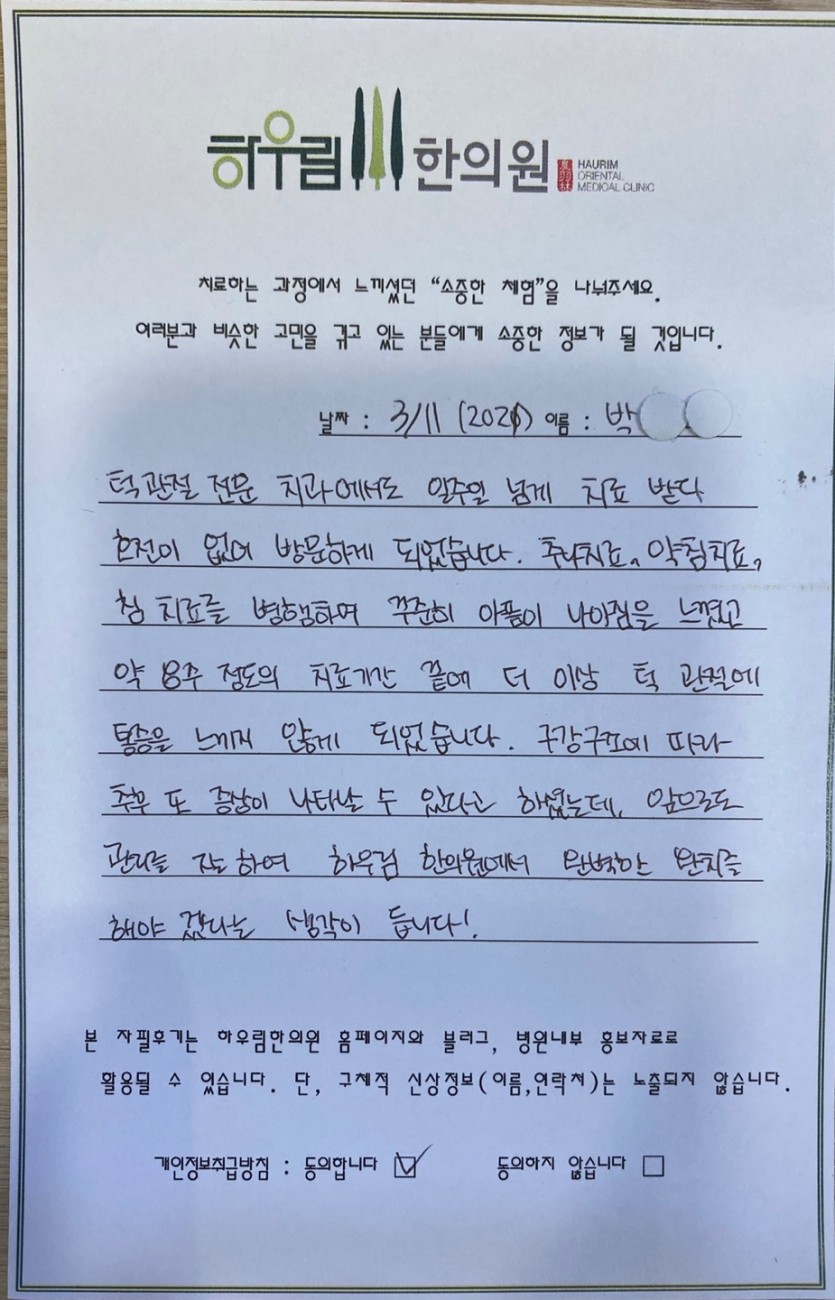 하우림 한의원 HAURIM ORIENTAL MEDICAL CLINIC
치료하는 과정에서 느끼셨던 “소중한 체험”을 나눠주세요.
여러분과 비슷한 고민을 겪고 있는 분들에게 소중한 정보가 될 것입니다.
날짜 : 3/11 (2021) 이름 : 박
턱관절 전문 치과에서도 일주일 넘게 치료 받다
호전이 없어 방문하게 되었습니다. 추나치료, 약침치료,
침 치료를 병행하며 꾸준히 아픔이 나아짐을 느꼈고
약 8주 정도의 치료기간 끝에 더 이상 턱 관절에
통증을 느끼지 않게 되었습니다. 구강구조에 따라
추후 또 증상이 나타날 수 있다고 하셨는데, 앞으로도
관리를 잘 하여 하우림 한의원에서 완벽한 완치를
해야 겠다는 생각이 듭니다!
본 자필후기는 하우림한의원 홈페이지와 블러그, 병원내부 홍보자료로
활용될 수 있습니다. 단, 구체적 신상정보(이름,연락처)는 노출되지 않습니다.
개인정보취급방침 : 동의합니다 ☑ 동의하지 않습니다 ☐